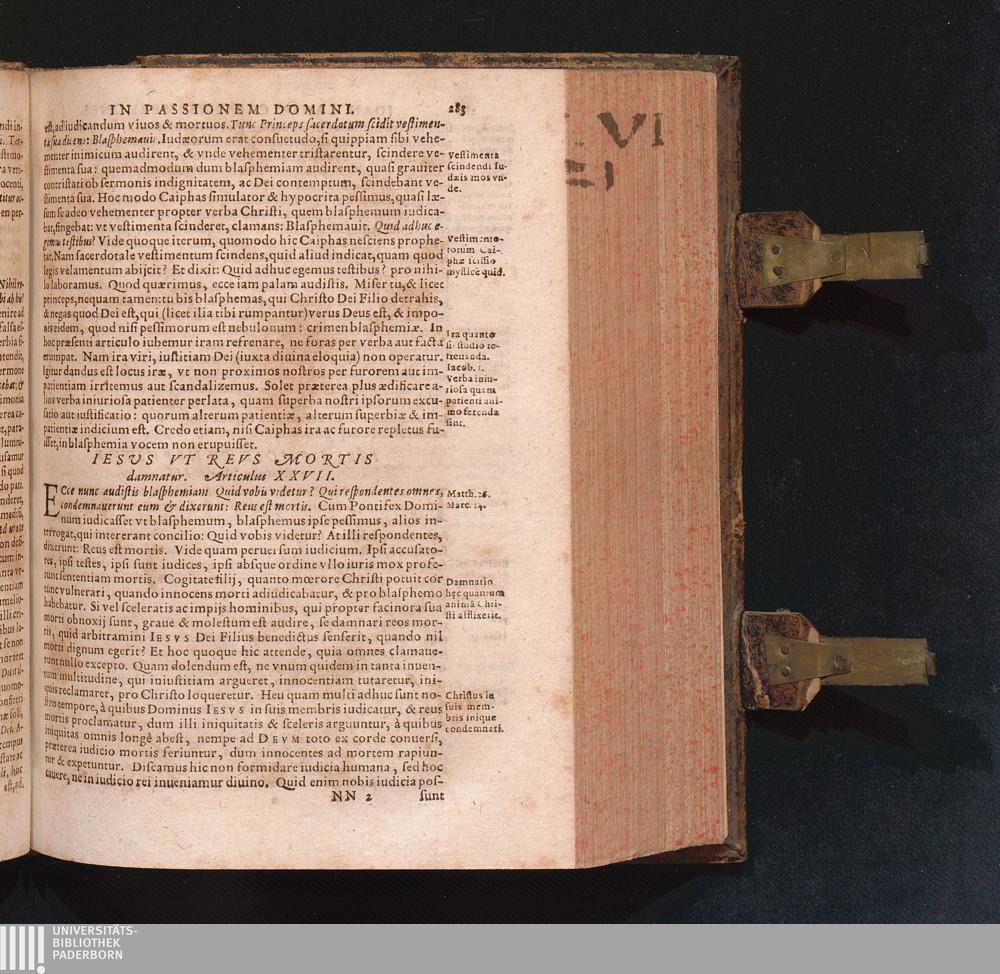 IN PASSIONEM DOMINI. 283
est, ad iudicandum viuos & mortuos. Tunc Princeps sacerdotum scidit vestimen-
ta sua dicens: Blasphemauit. Iudæorum erat consuetudo, si quippiam sibi vehe-
menter inimicum audirent, & vnde vehementer tristarentur, scindere ve-
stimenta sua: quemadmodum dum blasphemiam audirent, quasi grauiter
contristati ob sermonis indignitatem, ac Dei contemptum, scindebant ve-
stimenta sua. Hoc modo Caiphas simulator & hypocrita pessimus, quasi læ-
sum se adeo vehementer propter verba Christi, quem blasphemum iudica-
bat, fingebat: vt vestimenta scinderet, clamans: Blasphemauit. Quid adhuc e-
gemus testibus? Vide quoque iterum, quomodo hic Caiphas nesciens prophe-
tat. Nam sacerdotale vestimentum scindens, quid aliud indicat, quam quod
legis velamentum abijcit? Et dixit: Quid adhuc egemus testibus? pro nihi-
lo laboramus. Quod quærimus, ecce iam palam audistis. Miser tu, & licet
princeps, nequam tamen: tu bis blasphemas, qui Christo Dei Filio detrahis,
& negas quod Dei est, qui (licet ilia tibi rumpantur) verus Deus est, & impo-
nis eidem, quod nisi pessimorum est nebulonum: crimen blasphemiæ. In
hoc præsenti articulo iubemur iram refrenare, ne foras per verba aut facta
erumpat. Nam ira viri, iustitiam Dei (iuxta diuina eloquia) non operatur.
Igitur dandus est locus iræ, vt non proximos nostros per furorem aut im-
patientiam irritemus aut scandalizemus. Solet præterea plus ædificare a-
lios verba iniuriosa patienter perlata, quam superba nostri ipsorum excu-
satio aut iustificatio: quorum alterum patientiæ, alterum superbiæ & im-
patientiæ indicium est. Credo etiam, nisi Caiphas ira ac furore repletus fu-
isset, in blasphemia vocem non erupuisset.
Vestimenta
scindendi Iu-
dæis mos vn-
de.
Vestimento-
torum Cai-
phæ scissio
mysticè quid.
Ira quanto
sit studio re-
frenanda.
Iacob. 1.
Verba iniu-
riosa quam
patienti ani-
mo ferenda
sint.
IESVS VT REVS MORTIS
damnatur. Articulus XXVII.
Ecce nunc audistis blasphemiam Quid vobis videtur? Qui respondentes omnes,
condemnauerunt eum & dixerunt: Reus est mortis. Cum Pontifex Domi-
num iudicasset vt blasphemum, blasphemus ipse pessimus, alios in-
terrogat, qui intererant concilio: Quid vobis videtur? At illi respondentes,
dixerunt: Reus est mortis. Vide quam peruersum iudicium. Ipsi accusato-
res, ipsi testes, ipsi sunt iudices, ipsi absque ordine vllo iuris mox profe-
runt sententiam mortis. Cogitate filij, quanto mœrore Christi potuit cor
tunc vulnerari, quando innocens morti adiudicabatur, & pro blasphemo
habebatur. Si vel sceleratis ac impijs hominibus, qui propter facinora sua
morti obnoxij sunt, graue & molestum est audire, se damnari reos mor-
tis, quid arbitramini IESVS Dei Filius benedictus senserit, quando nil
morti dignum egerit? Et hoc quoque hic attende, quia omnes clamaue-
runt nullo excepto. Quam dolendum est, ne vnum quidem in tanta inuen-
tum multitudine, qui iniustitiam argueret, innocentiam tutaretur, ini-
quis reclamaret, pro Christo loqueretur. Heu quam multi adhuc sunt no-
stro tempore, à quibus Dominus IESVS in suis membris iudicatur, & reus
mortis proclamatur, dum illi iniquitatis & sceleris arguuntur, à quibus
iniquitas omnis longè abest, nempe ad DEVM toto ex corde conuersi,
præterea iudicio mortis feriuntur, dum innocentes ad mortem rapiun-
tur & expetuntur. Discamus hic non formidare iudicia humana, sed hoc
cauere, ne in iudicio rei inueniamur diuino. Quid enim nobis iudicia pos-
NN 2 sunt
Matth. 26.
Marc. 14.
Damnatio
hęc quantum
animã Chri-
sti afflixerit.
Christus in
suis mem-
bris iniquè
condemnari.
VI
UNIVERSITÄTS-
BIBLIOTHEK
PADERBORN